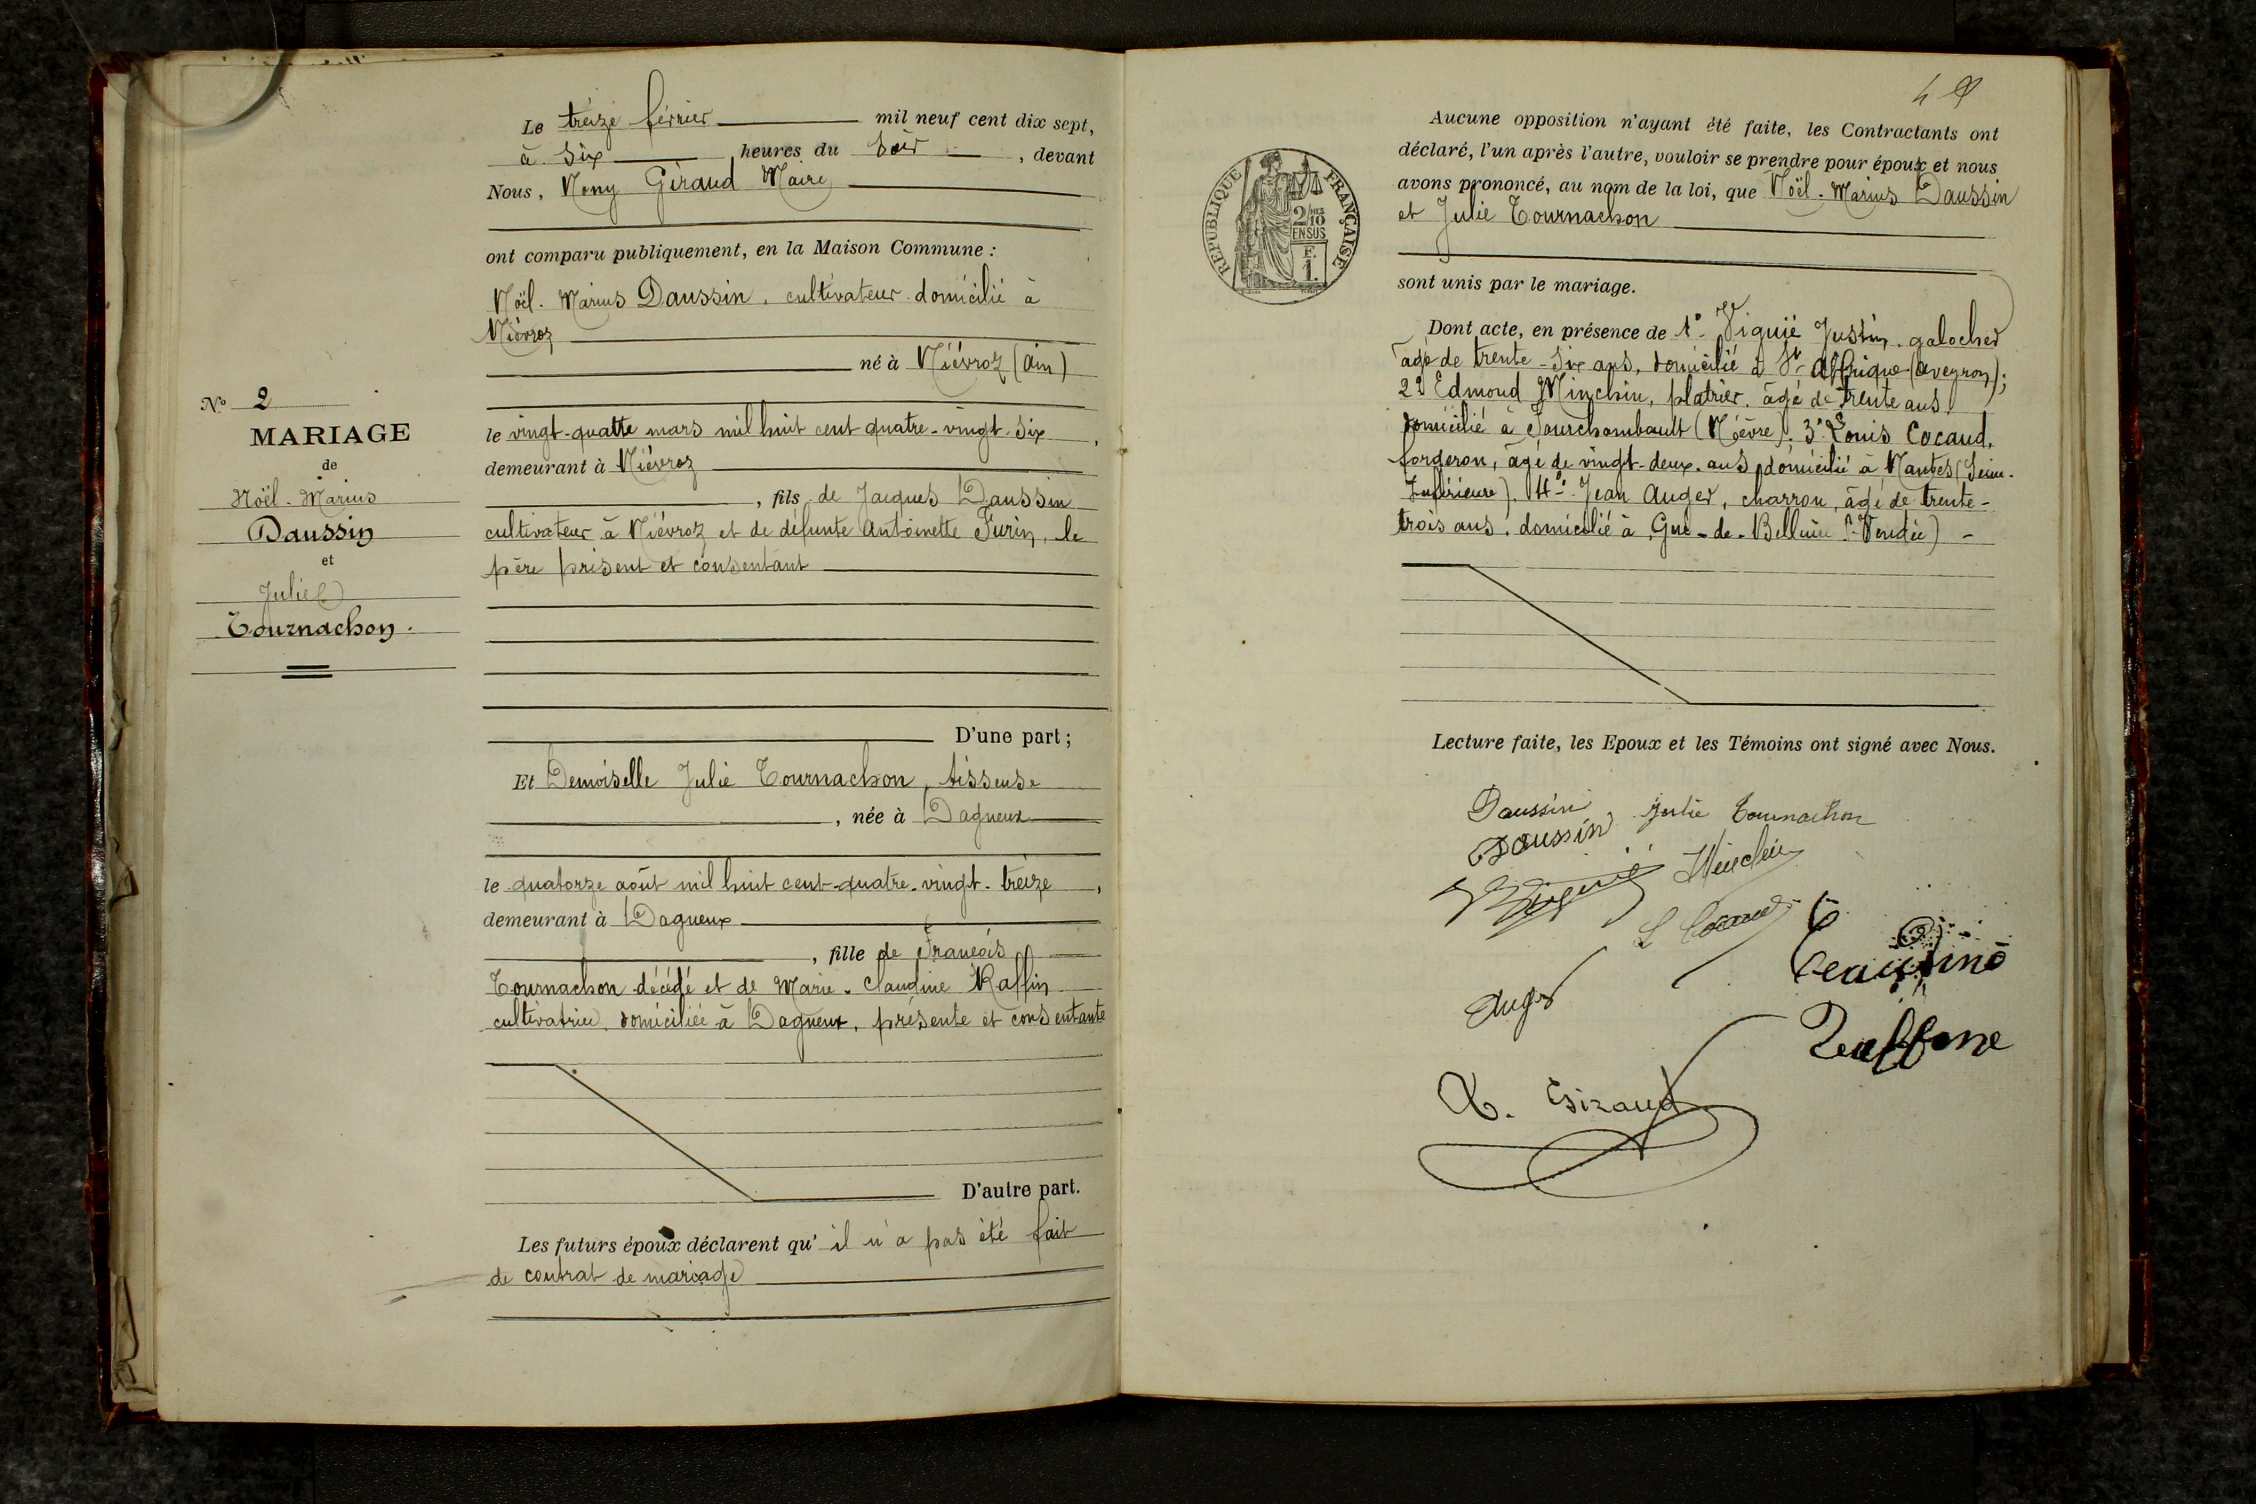 Le treize février mil neuf cent dix sept,
à six heures du soir, devant
Nous, Nony Giraud Maire
ont comparu publiquement, en la Maison Commune :
Noël. Marius Daussin, cultivateur domicilié à
Niévroz
né à Niévroz (Ain)
le vingt-quatre mars mil huit cent quatre-vingt six,
demeurant à Niévroz
, fils de Jacques Daussin
cultivateur à Niévroz et de défunte Antoinette Furin, le
père présent et consentant
D'une part ;
Et Demoiselle Julie Tournachon, tisseuse
, née à Dagneux
le quatorze août mil huit cent-quatre-vingt-treize,
demeurant à Dagneux
, fille de François
Tournachon décédé et de Marie-Claudine Raffin
cultivatrice domiciliée à Dagneux, présente et consentante
D'autre part.
Les futurs époux déclarent qu'il n'a pas été fait
de contrat de mariage
No 2
MARIAGE
de
Noël-Marius
Daussin
et
Julie
Tournachon.
RÉPUBLIQUE FRANÇAISE
2/10
EN SUS
F.
1.
Aucune opposition n'ayant été faite, les Contractants ont
déclaré, l'un après l'autre, vouloir se prendre pour époux et nous
avons prononcé, au nom de la loi, que Noël-Marius Daussin
et Julie Tournachon
sont unis par le mariage.
Dont acte, en présence de 1° Viguié Justin, galocher
âgé de trente-six ans, domicilié à St Affrique (Aveyron);
2° Edmond Minchin, platrier, âgé de trente ans
domicilié à Fourchambault (Nièvre). 3° Louis Cocaud,
forgeron, âgé de vingt-deux ans domicilié à Nantes (Seine-
Inférieure). 4° Jean Auger, charron, âgé de trente-
trois ans, domicilié à Gué-de-Velluire (Vendée)
Lecture faite, les Epoux et les Témoins ont signé avec Nous.
Daussin Julie Tournachon
Daussin
Viguié Minchin
L Cocaud
Auger
Raffine
N. Giraud